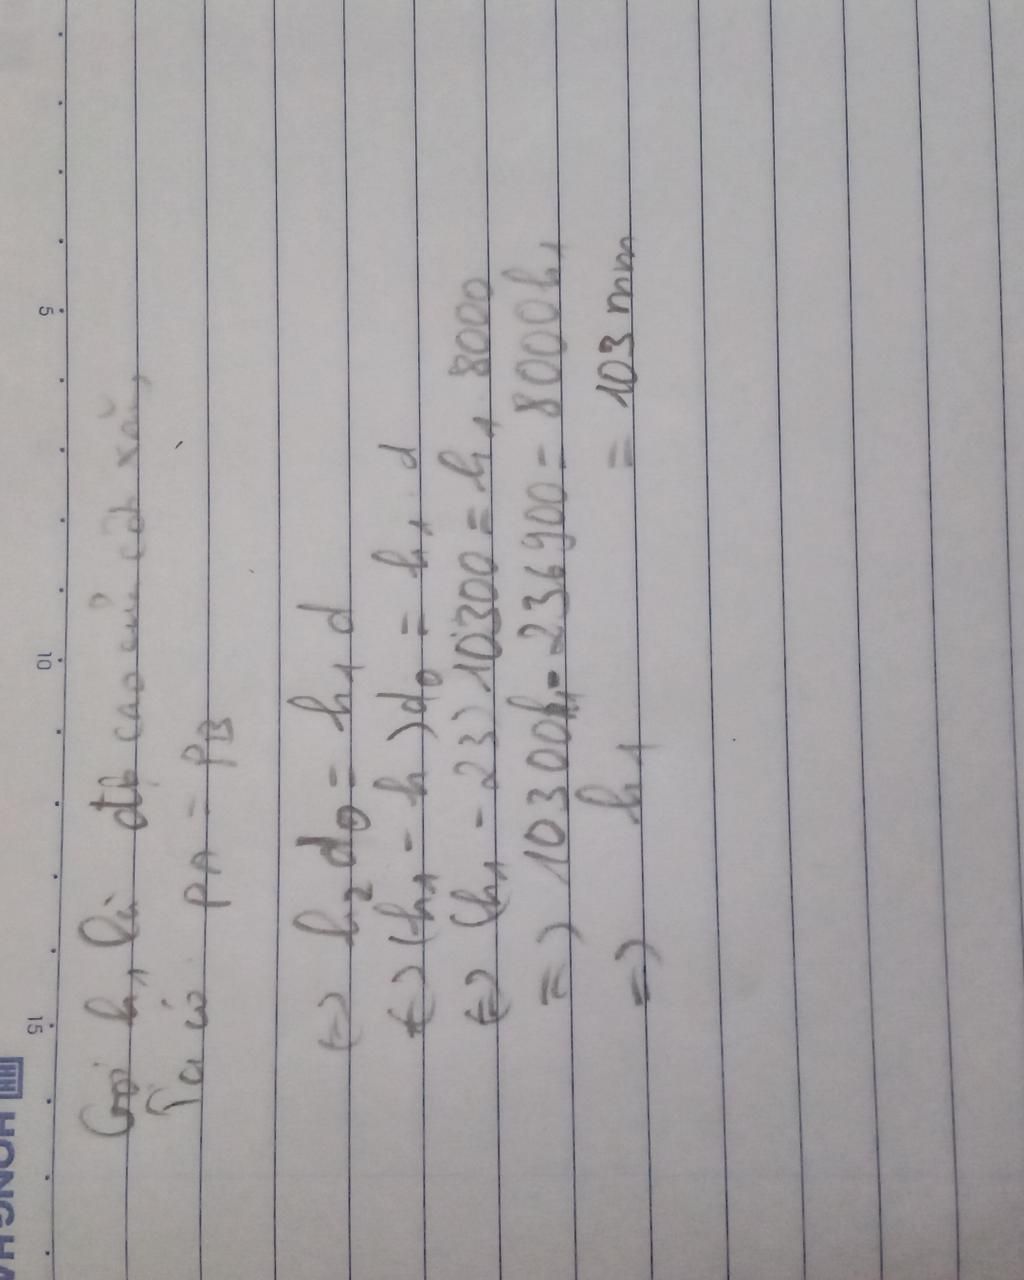 Gọi h₁ là độ cao của cột xăng
Ta có pA = pB
<=> h₂ d₀ = h₁ d
<=> (h₁ - h) d₀ = h₁ . d
<=> (h₁ - 23) 10300 = h₁ . 8000
=> 10300h₁ - 236900 = 8000h₁
=> h₁ = 103 mm
5
10
15
HONG HA